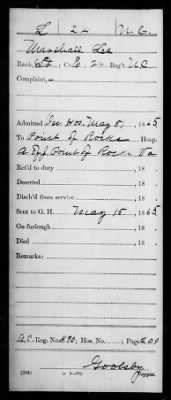 L | 24 | N.C.
Marshall Lee
Rank, Pvt, Co. E, 24 Reg't N.C.
Complaint,
Admitted In Hos. May 8, 1865
To Point of Rocks Hosp.
A. Off. Point of Rocks Va
Ret'd to duty , 18
Deserted , 18
Disch'd from service , 18
Sent to G. H. May 15, 1865
On furlough , 18
Died , 18
Remarks:
A.C. Reg. No. 490; Hos. No. ; Page 209
Goolsby
Copyist.